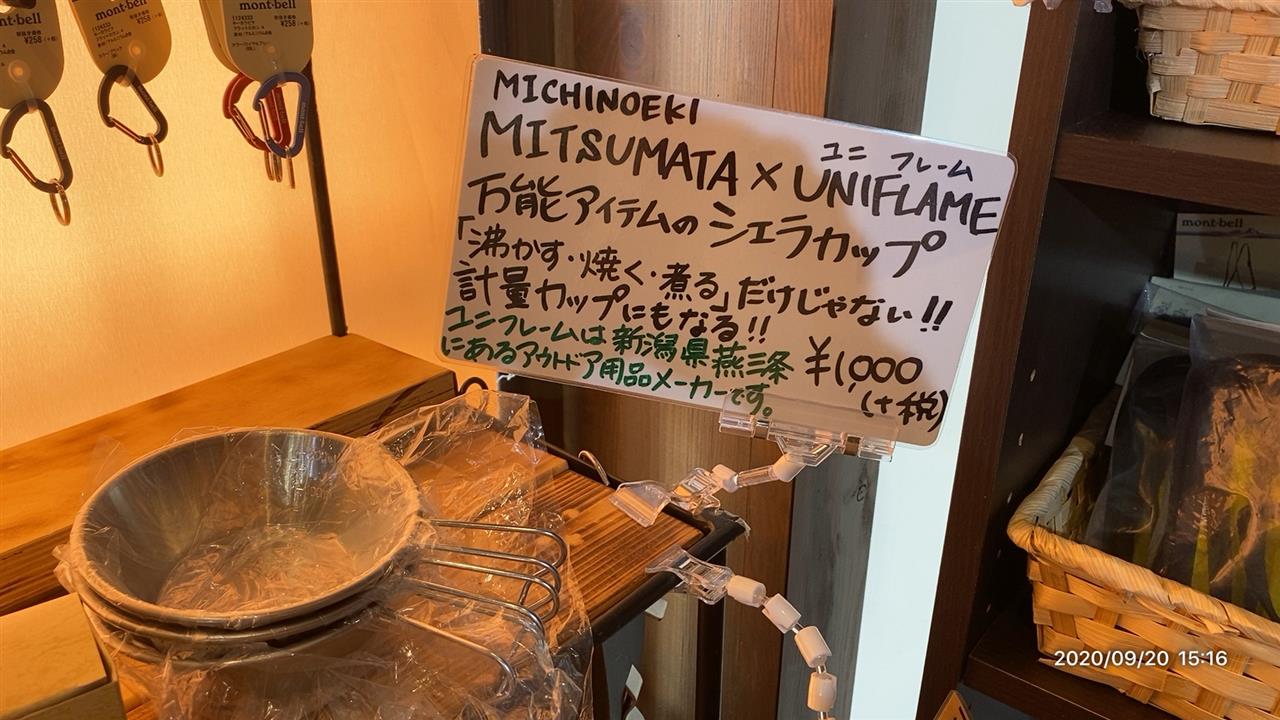 mont·bell
¥258 (+税)
mont·bell
1124333
¥258 (+税)
mont·bell
1124333
¥258 (+税)
MICHINOEKI
MITSUMATA × UNIFLAME
ユニ フレーム
万能アイテムの シェラカップ
「沸かす・焼く・煮る」だけじゃない!!
計量カップにもなる!!
ユニフレームは新潟県燕三条
にあるアウトドア用品メーカーです。
¥1,000
(+税)
mont-bell
2020/09/20 15:16